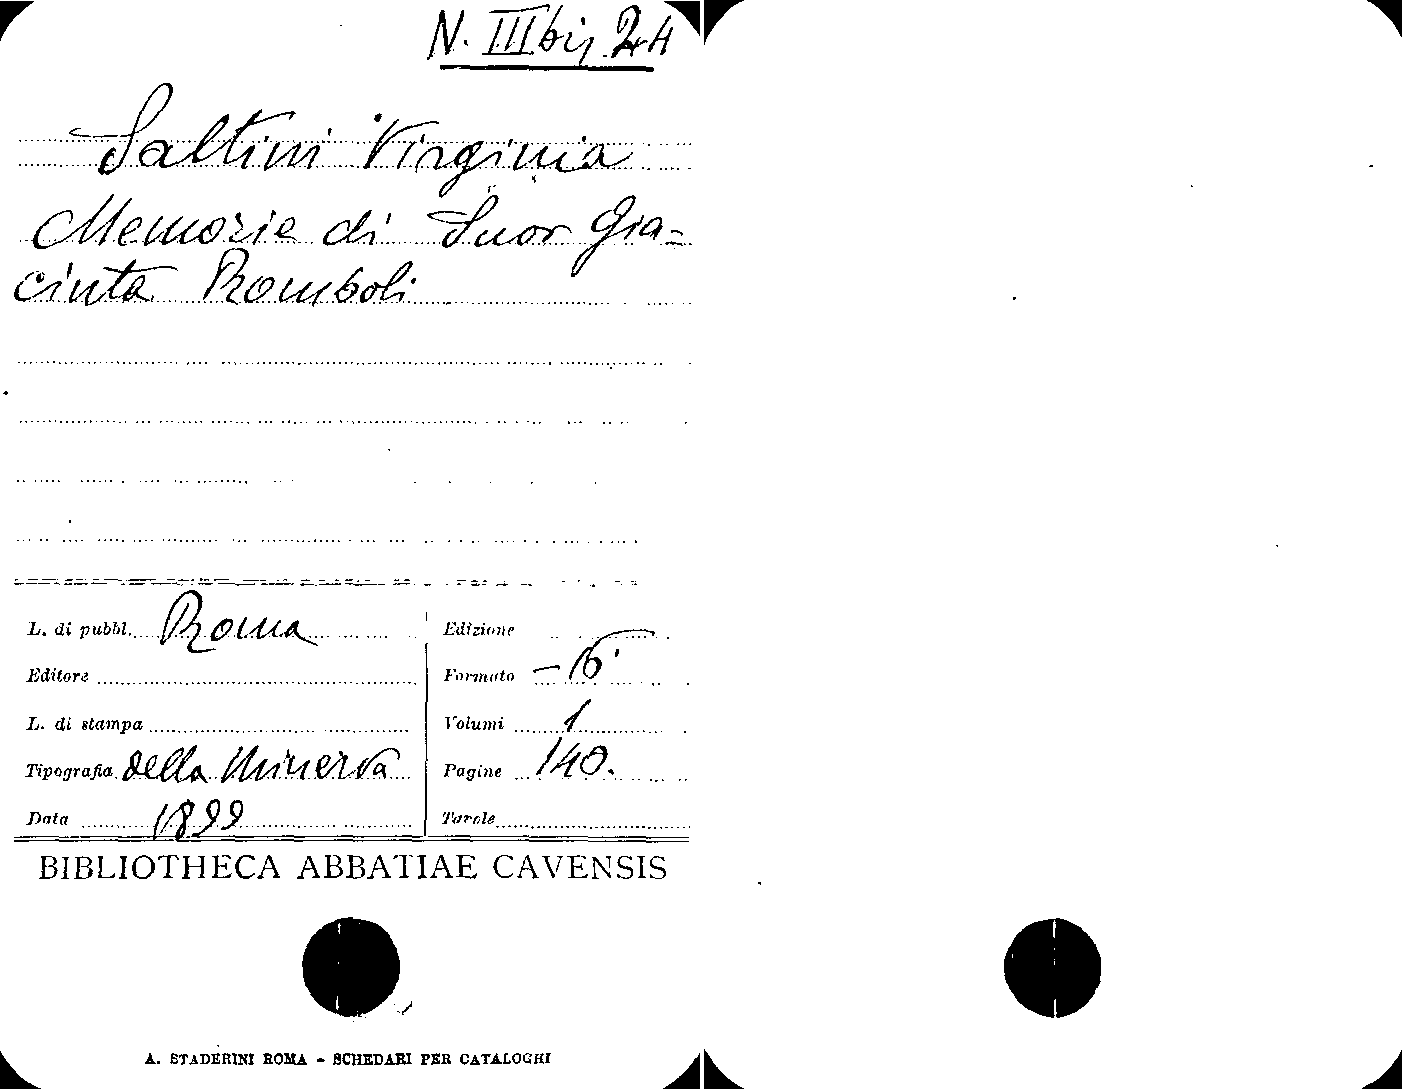 N. III bis 24
Saltini Virginia
Memorie di Suor Gia=
cinta Romboli
L. di pubbl. Roma
Editore
L. di stampa
Tipografia della Minerva
Data 1899
Edizione
Formato
Volumi 1
Pagine 140.
Tavole
BIBLIOTHECA ABBATIAE CAVENSIS
A. STADERINI ROMA - SCHEDARI PER CATALOGHI